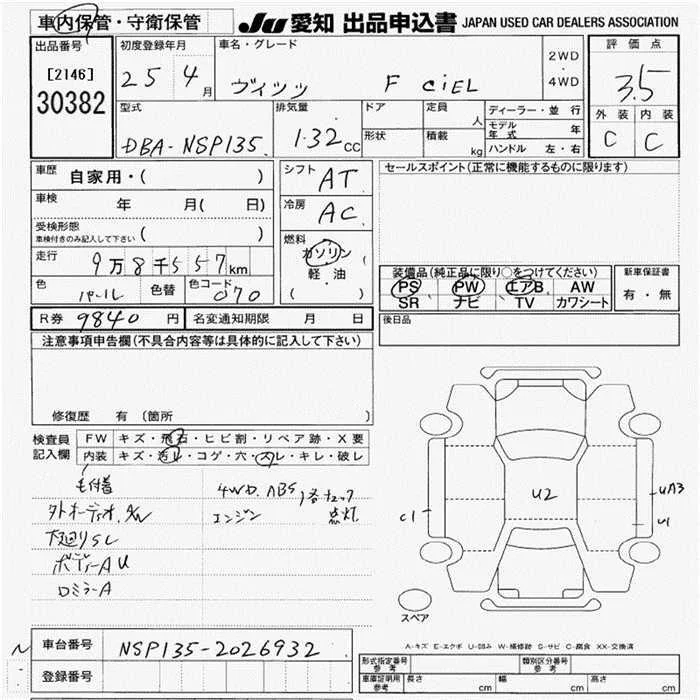 車内保管・守衛保管
JU 愛知 出品申込書 JAPAN USED CAR DEALERS ASSOCIATION
出品番号
[2146]
30382
初度登録年月
25 4月
車名・グレード
ヴィッツ F CiEL
2WD
・
4WD
評価点
3.5
外装 内装
C C
型式
DBA-NSP135
排気量
1.32cc
ドア
形状
定員 人
積載 kg
ディーラー・並行
モデル年式 年
ハンドル 左・右
車歴 自家用・( )
車検 年 月( 日)
受検形態
車検付きのみ記入して下さい ( )
走行 9万8千557km
色 パール 色替 色コード 070
シフト AT
冷房 AC
燃料
ガソリン
軽・油
( )
セールスポイント(正常に機能するものに限ります)
装備品(純正品に限り○をつけてください)
PS PW エアB AW
SR ナビ TV カワシート
新車保証書
有・無
R券 9840円 名変通知期限 月 日
後日品
注意事項申告欄(不具合内容等は具体的に記入して下さい)
修復歴 有(箇所
検査員記入欄
FW キズ・飛石・ヒビ割・リペア跡・X要
内装 キズ・汚レ・コゲ・穴・スレ・キレ・破レ
4WD. ABS
エンジン
各チェック
点灯
外オーディオ
ボディーA U
ロミラーA
U2
C1
UA3
U1
スペア
A-キズ E-エクボ U-凹み W-補修跡 S-サビ C-腐食 XX-交換済
車台番号 NSP135-2026932
登録番号
型式指定番号
参考
類別区分番号
参考
車庫証明用
参考
長さ cm 幅 cm 高さ cm